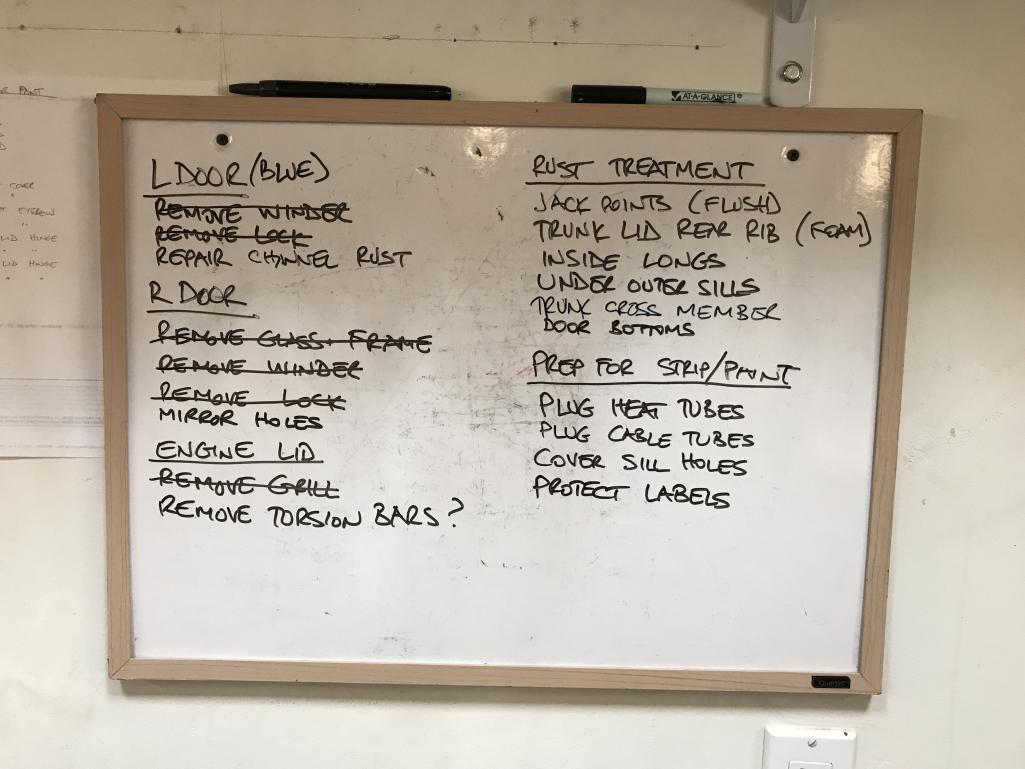 AT-A-GLANCE
R PAINT
COVER
EYEBROW
LID HINGE
LID HINGE
L DOOR (BLUE)
REMOVE WINDER
REMOVE LOCK
REPAIR CHANNEL RUST
R DOOR
REMOVE GLASS + FRAME
REMOVE WINDER
REMOVE LOCK
MIRROR HOLES
ENGINE LID
REMOVE GRILL
REMOVE TORSION BARS?
RUST TREATMENT
JACK POINTS (FLUSH)
TRUNK LID REAR RIB (FOAM)
INSIDE LONGS
UNDER OUTER SILLS
TRUNK CROSS MEMBER
DOOR BOTTOMS
PREP FOR STRIP/PAINT
PLUG HEAT TUBES
PLUG CABLE TUBES
COVER SILL HOLES
PROTECT LABELS
Quartet